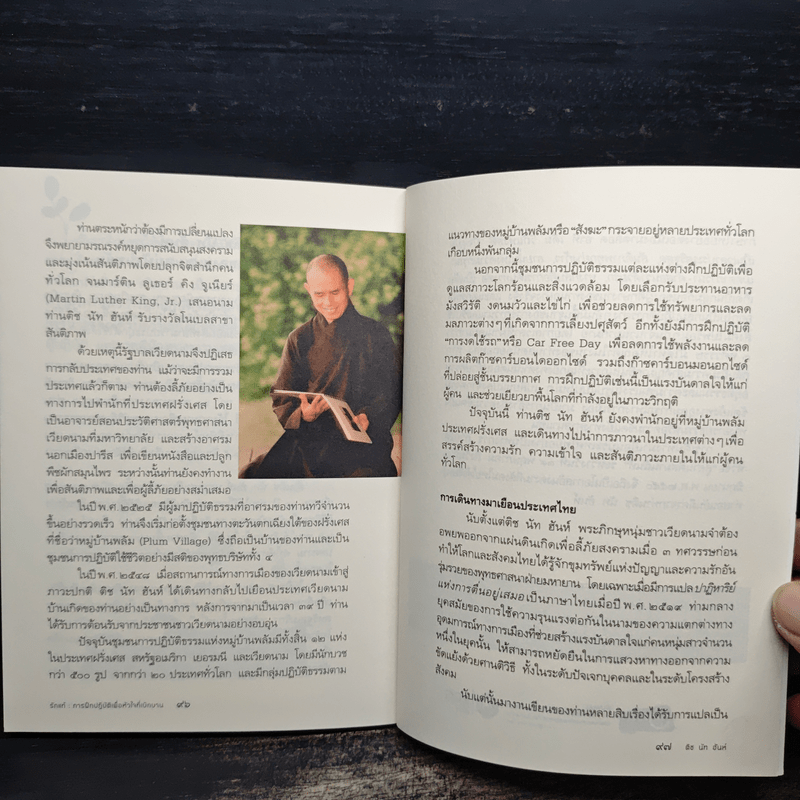 ท่านตระหนักว่าต้องมีการเปลี่ยนแปลง
จึงพยายามรณรงค์หยุดการสนับสนุนสงคราม
และมุ่งเน้นสันติภาพโดยปลุกจิตสำนึกคน
ทั่วโลก จนมาร์ติน ลูเธอร์ คิง จูเนียร์
(Martin Luther King, Jr.) เสนอนาม
ท่านติช นัท ฮันห์ รับรางวัลโนเบลสาขา
สันติภาพ
ด้วยเหตุนี้รัฐบาลเวียดนามจึงปฏิเสธ
การกลับประเทศของท่าน แม้ว่าจะมีการรวม
ประเทศแล้วก็ตาม ท่านต้องลี้ภัยอย่างเป็น
ทางการไปพำนักที่ประเทศฝรั่งเศส โดย
เป็นอาจารย์สอนประวัติศาสตร์พุทธศาสนา
เวียดนามที่มหาวิทยาลัย และสร้างอาศรม
นอกเมืองปารีส เพื่อเขียนหนังสือและปลูก
พืชผักสมุนไพร ระหว่างนั้นท่านยังคงทำงาน
เพื่อสันติภาพและเพื่อผู้ลี้ภัยอย่างสม่ำเสมอ
ในปี พ.ศ. ๒๕๒๕ มีผู้มาปฏิบัติธรรมที่อาศรมของท่านทวีจำนวน
ขึ้นอย่างรวดเร็ว ท่านจึงเริ่มก่อตั้งชุมชนทางตะวันตกเฉียงใต้ของฝรั่งเศส
ที่ชื่อว่าหมู่บ้านพลัม (Plum Village) ซึ่งถือเป็นบ้านของท่านและเป็น
ชุมชนการปฏิบัติใช้ชีวิตอย่างมีสติของพุทธบริษัททั้ง ๔
ในปี พ.ศ. ๒๕๔๘ เมื่อสถานการณ์ทางการเมืองของเวียดนามเข้าสู่
ภาวะปกติ ติช นัท ฮันห์ ได้เดินทางกลับไปเยือนประเทศเวียดนาม
บ้านเกิดของท่านอย่างเป็นทางการ หลังการจากมาเป็นเวลา ๓๙ ปี ท่าน
ได้รับการต้อนรับจากประชาชนชาวเวียดนามอย่างอบอุ่น
ปัจจุบันชุมชนการปฏิบัติธรรมแห่งหมู่บ้านพลัมมีทั้งสิ้น ๑๒ แห่ง
ในประเทศฝรั่งเศส สหรัฐอเมริกา เยอรมนี และเวียดนาม โดยมีนักบวช
กว่า ๕๐๐ รูป จากกว่า ๒๐ ประเทศทั่วโลก และมีกลุ่มปฏิบัติธรรมตาม
รักแท้ : การฝึกปฏิบัติเพื่อหัวใจที่เบิกบาน ๙๖
แนวทางของหมู่บ้านพลัมหรือ “สังฆะ” กระจายอยู่หลายประเทศทั่วโลก
เกือบหนึ่งพันกลุ่ม
นอกจากนี้ชุมชนการปฏิบัติธรรมแต่ละแห่งต่างฝึกปฏิบัติเพื่อ
ดูแลสภาวะโลกร้อนและสิ่งแวดล้อม โดยเลือกรับประทานอาหาร
มังสวิรัติ งดนมวัวและไข่ไก่ เพื่อช่วยลดการใช้ทรัพยากรและลด
มลภาวะต่างๆ ที่เกิดจากการเลี้ยงปศุสัตว์ อีกทั้งยังมีการฝึกปฏิบัติ
“การงดใช้รถ” หรือ Car Free Day เพื่อลดการใช้พลังงานและลด
การผลิตก๊าซคาร์บอนไดออกไซด์ รวมถึงก๊าซคาร์บอนมอนอกไซด์
ที่ปล่อยสู่ชั้นบรรยากาศ การฝึกปฏิบัติเช่นนี้เป็นแรงบันดาลใจให้แก่
ผู้คน และช่วยเยียวยาพื้นโลกที่กำลังอยู่ในภาวะวิกฤติ
ปัจจุบันนี้ ท่านติช นัท ฮันห์ ยังคงพำนักอยู่ที่หมู่บ้านพลัม
ประเทศฝรั่งเศส และเดินทางไปนำการภาวนาในประเทศต่างๆ เพื่อ
สรรค์สร้างความรัก ความเข้าใจ และสันติภาวะภายในให้แก่ผู้คน
ทั่วโลก
การเดินทางมาเยือนประเทศไทย
นับตั้งแต่ติช นัท ฮันห์ พระภิกษุหนุ่มชาวเวียดนามจำต้อง
อพยพออกจากแผ่นดินเกิดเพื่อลี้ภัยสงครามเมื่อ ๓ ทศวรรษก่อน
ทำให้โลกและสังคมไทยได้รู้จักขุมทรัพย์แห่งปัญญาและความรักอัน
รุ่มรวยของพุทธศาสนาฝ่ายมหายาน โดยเฉพาะเมื่อมีการแปล ปาฏิหาริย์
แห่งการตื่นอยู่เสมอ เป็นภาษาไทยเมื่อปี พ.ศ. ๒๕๑๙ ท่ามกลาง
ยุคสมัยของการใช้ความรุนแรงต่อกันในนามของความแตกต่างทาง
อุดมการณ์ทางการเมืองที่ช่วยสร้างแรงบันดาลใจแก่คนหนุ่มสาวจำนวน
หนึ่งในยุคนั้น ให้สามารถหยัดยืนในการแสวงหาทางออกจากความ
ขัดแย้งด้วยศานติวิธี ทั้งในระดับปัจเจกบุคคลและในระดับโครงสร้าง
สังคม
นับแต่นั้นมางานเขียนของท่านหลายสิบเรื่องได้รับการแปลเป็น
๙๗ ติช นัท ฮันห์